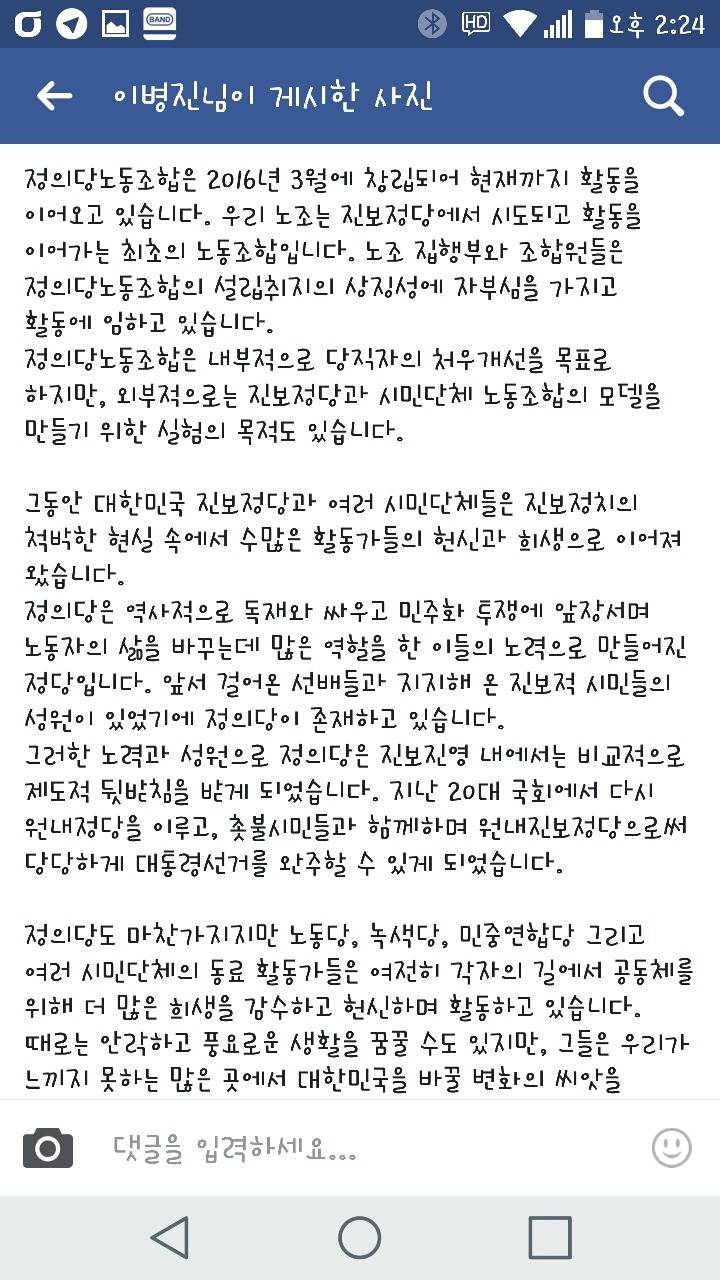 BAND
HD
오후 2:24
이병진님이 게시한 사진
정의당노동조합은 2016년 3월에 창립되어 현재까지 활동을
이어오고 있습니다. 우리 노조는 진보정당에서 시도되고 활동을
이어가는 최초의 노동조합입니다. 노조 집행부와 조합원들은
정의당노동조합의 설립취지의 상징성에 자부심을 가지고
활동에 임하고 있습니다.
정의당노동조합은 내부적으로 당직자의 처우개선을 목표로
하지만, 외부적으로는 진보정당과 시민단체 노동조합의 모델을
만들기 위한 실험의 목적도 있습니다.
그동안 대한민국 진보정당과 여러 시민단체들은 진보정치의
척박한 현실 속에서 수많은 활동가들의 헌신과 희생으로 이어져
왔습니다.
정의당은 역사적으로 독재와 싸우고 민주화 투쟁에 앞장서며
노동자의 삶을 바꾸는데 많은 역할을 한 이들의 노력으로 만들어진
정당입니다. 앞서 걸어온 선배들과 지지해 온 진보적 시민들의
성원이 있었기에 정의당이 존재하고 있습니다.
그러한 노력과 성원으로 정의당은 진보진영 내에서는 비교적으로
제도적 뒷받침을 받게 되었습니다. 지난 20대 국회에서 다시
원내정당을 이루고, 촛불시민들과 함께하며 원내진보정당으로써
당당하게 대통령선거를 완주할 수 있게 되었습니다.
정의당도 마찬가지지만 노동당, 녹색당, 민중연합당 그리고
여러 시민단체의 동료 활동가들은 여전히 각자의 길에서 공동체를
위해 더 많은 희생을 감수하고 헌신하며 활동하고 있습니다.
때로는 안락하고 풍요로운 생활을 꿈꿀 수도 있지만, 그들은 우리가
느끼지 못하는 많은 곳에서 대한민국을 바꿀 변화의 씨앗을
댓글을 입력하세요...